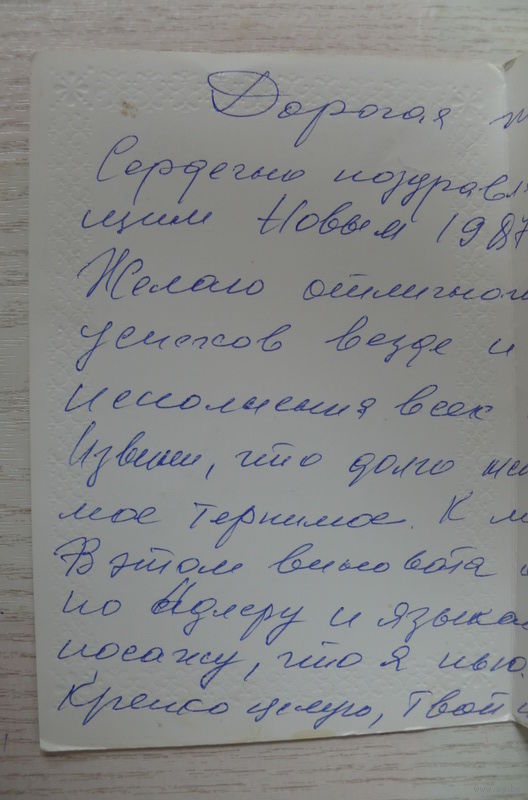 Дорогая
Сердечно поздравл
щим Новым 1987
Желаю отличного
успехов везде и
исполнения всех
Извини, что долго не
мое терпимое. К м
В этом виновата
по Адлеру и языка
посажу, что я пью.
Крепко целую, твой